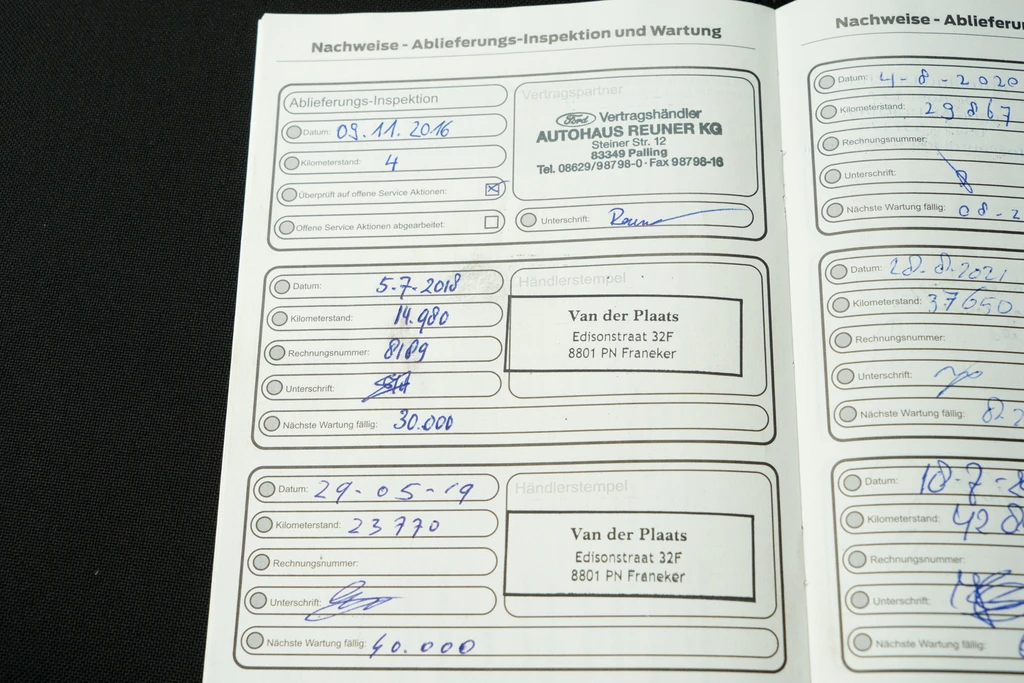 Nachweise - Ablieferungs-Inspektion und Wartung
Ablieferungs-Inspektion
Datum: 09.11.2016
Kilometerstand: 4
Überprüft auf offene Service Aktionen:
Offene Service Aktionen abgearbeitet:
Vertragspartner
Ford Vertragshändler
AUTOHAUS REUNER KG
Steiner Str. 12
83349 Palling
Tel. 08629/98798-0 · Fax 98798-16
Unterschrift:
Datum: 5-7-2018
Kilometerstand: 14.980
Rechnungsnummer: 8189
Unterschrift:
Nächste Wartung fällig: 30.000
Händlerstempel
Van der Plaats
Edisonstraat 32F
8801 PN Franeker
Datum: 29-05-19
Kilometerstand: 23770
Rechnungsnummer:
Unterschrift:
Nächste Wartung fällig: 40.000
Händlerstempel
Van der Plaats
Edisonstraat 32F
8801 PN Franeker
Nachweise - Ablieferu
Datum: 4-8-2020
Kilometerstand: 29867
Rechnungsnummer:
Unterschrift:
Nächste Wartung fällig: 08-2
Datum: 28-8-2021
Kilometerstand: 37650
Rechnungsnummer:
Unterschrift:
Nächste Wartung fällig:
Datum: 18-7-2
Kilometerstand: 428
Rechnungsnummer:
Unterschrift:
Nächste Wartung fällig: